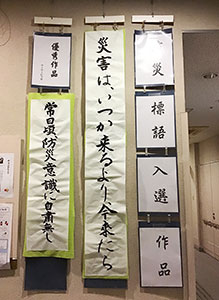 災
標語
入選
作品
災害は、いつか来るより今来たら
優秀作品
常日頃、防災意識に自粛無し